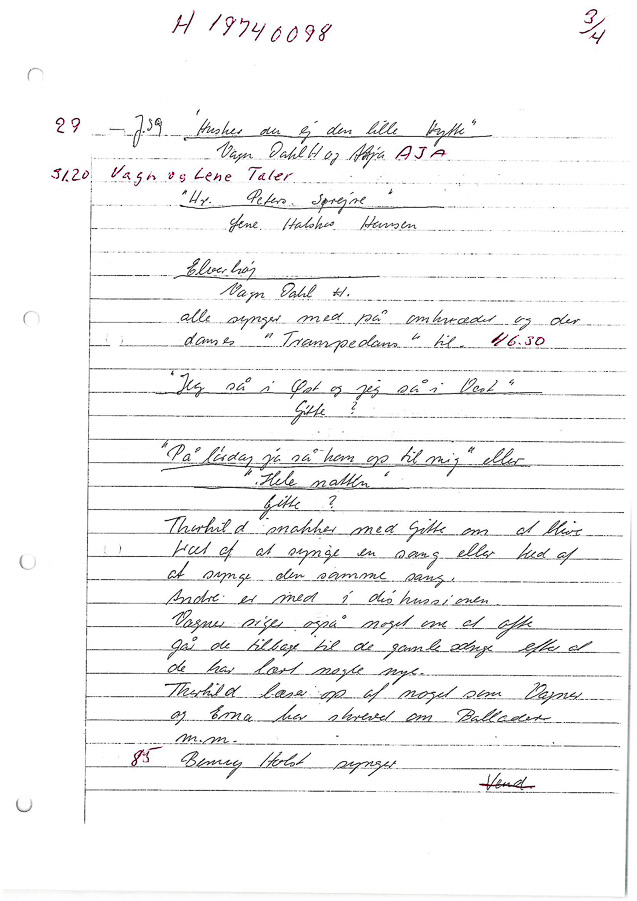 H 19740098
3/4
29 — J.59 "Husker du ej den lille Hytte"
Vagn Dahl H og AJA
31.20 Vagn og Lene Taler
"Hr. Peters Sprejre"
Lene Halskov Hansen
Elverhøj
Vagn Dahl H.
alle synger med på omkvædet og der
danses "Trampedans" til. 46.30
"Jeg så i Øst og jeg så i Vest"
Gitte ?
"På lørdag ja så kom op til mig" eller
"Hele natten"
Gitte ?
Thorkild snakker med Gitte om at blive
træt af at synge en sang eller ked af
at synge den samme sang.
Andre er med i diskussionen.
Vagner siger også noget om at ofte
går de tilbage til de gamle sange efter at
de har lært nogle nye.
Thorkild læser op af noget som Vagner
og Erna har skrevet om Ballader
m.m.
85 Benny Holst synger
Vend